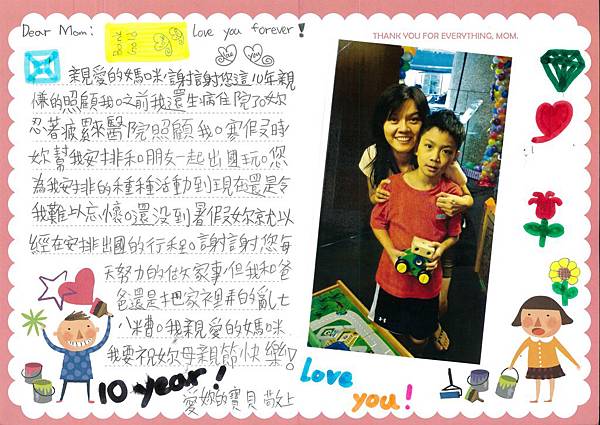 Dear Mom:
Bank
Gold
Love you forever!
THANK YOU FOR EVERYTHING, MOM.
You
親愛的媽咪,謝謝您這10年親
的照顧我。之前我還生病住院了。妳
忍著疲累來醫院照顧我。寒假時
妳幫我安排和朋友一起出國玩。您
為我安排的種種活動到現在還是令
我難以忘懷。還沒到暑假妳就以
經在安排出國的行程。謝謝您每
天努力的做家事,但我和爸
爸還是把家裡弄的亂七
八糟。我親愛的媽咪
我要祝妳母親節快樂!
10 year!
愛妳的寶貝 敬上
Love
you!